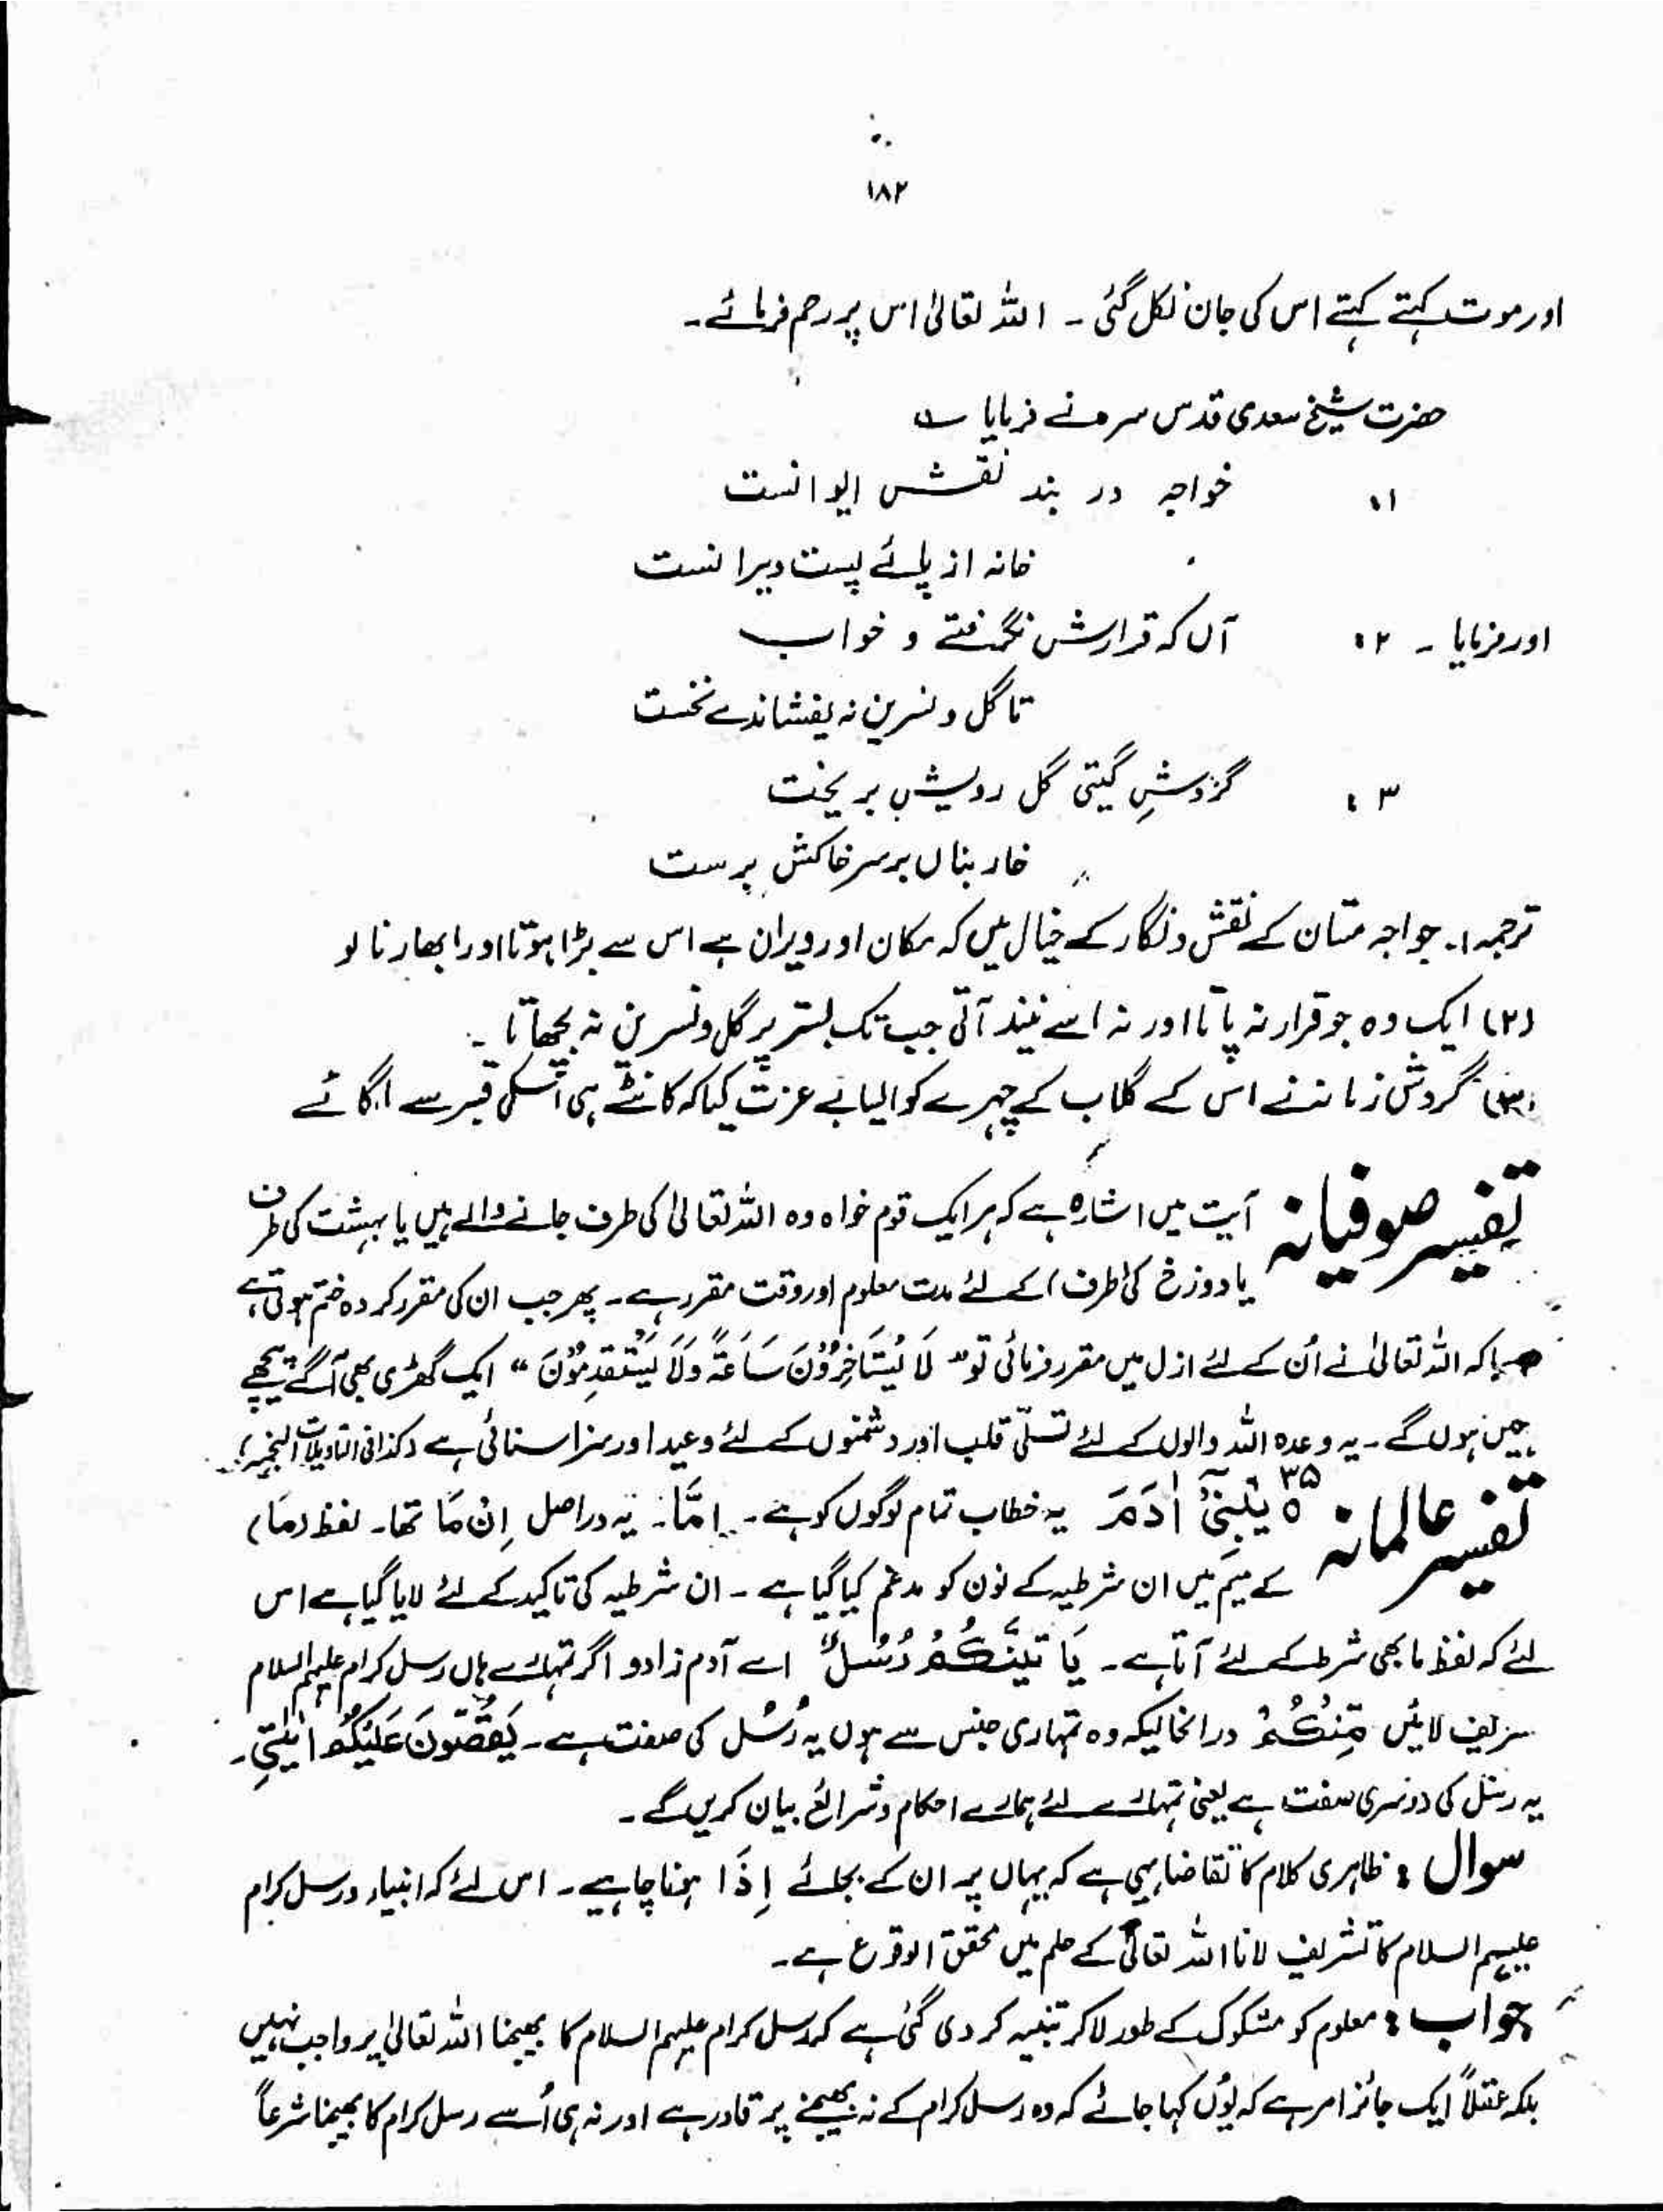 ۱۸۲
اور موت کہتے کہتے اس کی جان نکل گئی ۔ اللہ تعالیٰ اس پر رحم فرمائے ۔
حضرت شیخ سعدی قدس سرہ نے فرمایا ؎
۱: خواجہ در بند نقش ایوانست
خانہ از پائے پست ویرانست
اور فرمایا ۔ ۲: آں کہ قرارش نگرفتے و خواب
تا گل و نسرین نہ یفشاندے نخست
۳: گردشِ گیتی گل رویش بریخت
خار بناں بر سر خاکش برست
ترجمہ ۱۔ جواجہ مستان کے نقش و نگار کے خیال میں کہ مکان اور ویران ہے اس سے بڑا ہوتا اور ابھارنا لو
(۲) ایک وہ جو قرار نہ پاتا اور نہ اسے نیند آتی جب تک بستر پر گل و نسرین نہ بچھاتا ۔
(۳) گردش زمانہ نے اس کے گلاب کے چہرے کو ایسا بے عزت کیا کہ کانٹے ہی اسکی قبر سے اگائے
تفسیر صوفیانہ آیت میں اشارہ ہے کہ ہر ایک قوم خواہ وہ اللہ تعالیٰ کی طرف جانے والے ہیں یا بہشت کی طرف
یا دوزخ کی طرف) کے لئے مدت معلوم اور وقت مقرر ہے ۔ پھر جب ان کی مقرر کردہ ختم ہوتی ہے
جیسا کہ اللہ تعالیٰ نے اُن کے لئے ازل میں مقرر فرمائی تو “ لَا یَسْتَاْخِرُوْنَ سَاعَۃً وَّلَا یَسْتَقْدِمُوْنَ “ ایک گھڑی بھی آگے پیچھے
نہیں ہوں گے ۔ یہ وعدہ اللہ والوں کے لئے تسلّی قلب اور دشمنوں کے لئے وعید اور سزا سنائی ہے (کذا فی التاویلات النجمیہ)
تفسیر عالمانہ ۳۵ یٰبَنِیْۤ اٰدَمَ یہ خطاب تمام لوگوں کو ہے ۔ اِمَّا ۔ یہ دراصل اِنْ مَا تھا ۔ لفظ (مَا)
کے میم میں ان شرطیہ کے نون کو مدغم کیا گیا ہے ۔ ان شرطیہ کی تاکید کے لئے لایا گیا ہے اس
لئے کہ لفظ ما بھی شرط کے لئے آتا ہے ۔ یَاْتِیَنَّکُمْ رُسُلٌ اے آدم زادو اگر تمہارے ہاں رسل کرام علیہم السلام
تشریف لائیں مِّنْکُمْ درانحالیکہ وہ تمہاری جنس سے ہوں یہ رُسُل کی صفت ہے ۔ یَقُصُّوْنَ عَلَیْکُمْ اٰیٰتِیْ ۔
یہ رسل کی دوسری صفت ہے یعنی تمہارے لئے ہمارے احکام و شرائع بیان کریں گے ۔
سوال : ظاہری کلام کا تقاضا یہی ہے کہ یہاں پر ان کے بجائے اِذَا ہونا چاہیے ۔ اس لئے کہ انبیاء و رسل کرام
علیہم السلام کا تشریف لانا اللہ تعالیٰ کے علم میں محقق الوقوع ہے ۔
جواب : معلوم کو مشکوک کے طور لا کر تنبیہ کر دی گئی ہے کہ رسل کرام علیہم السلام کا بھیجنا اللہ تعالیٰ پر واجب نہیں
بلکہ عقلاً ایک جائز امر ہے کہ یوں کہا جائے کہ وہ رسل کرام کے نہ بھیجنے پر قادر ہے اور نہ ہی اُسے رسل کرام کا بھیجنا شرعاً